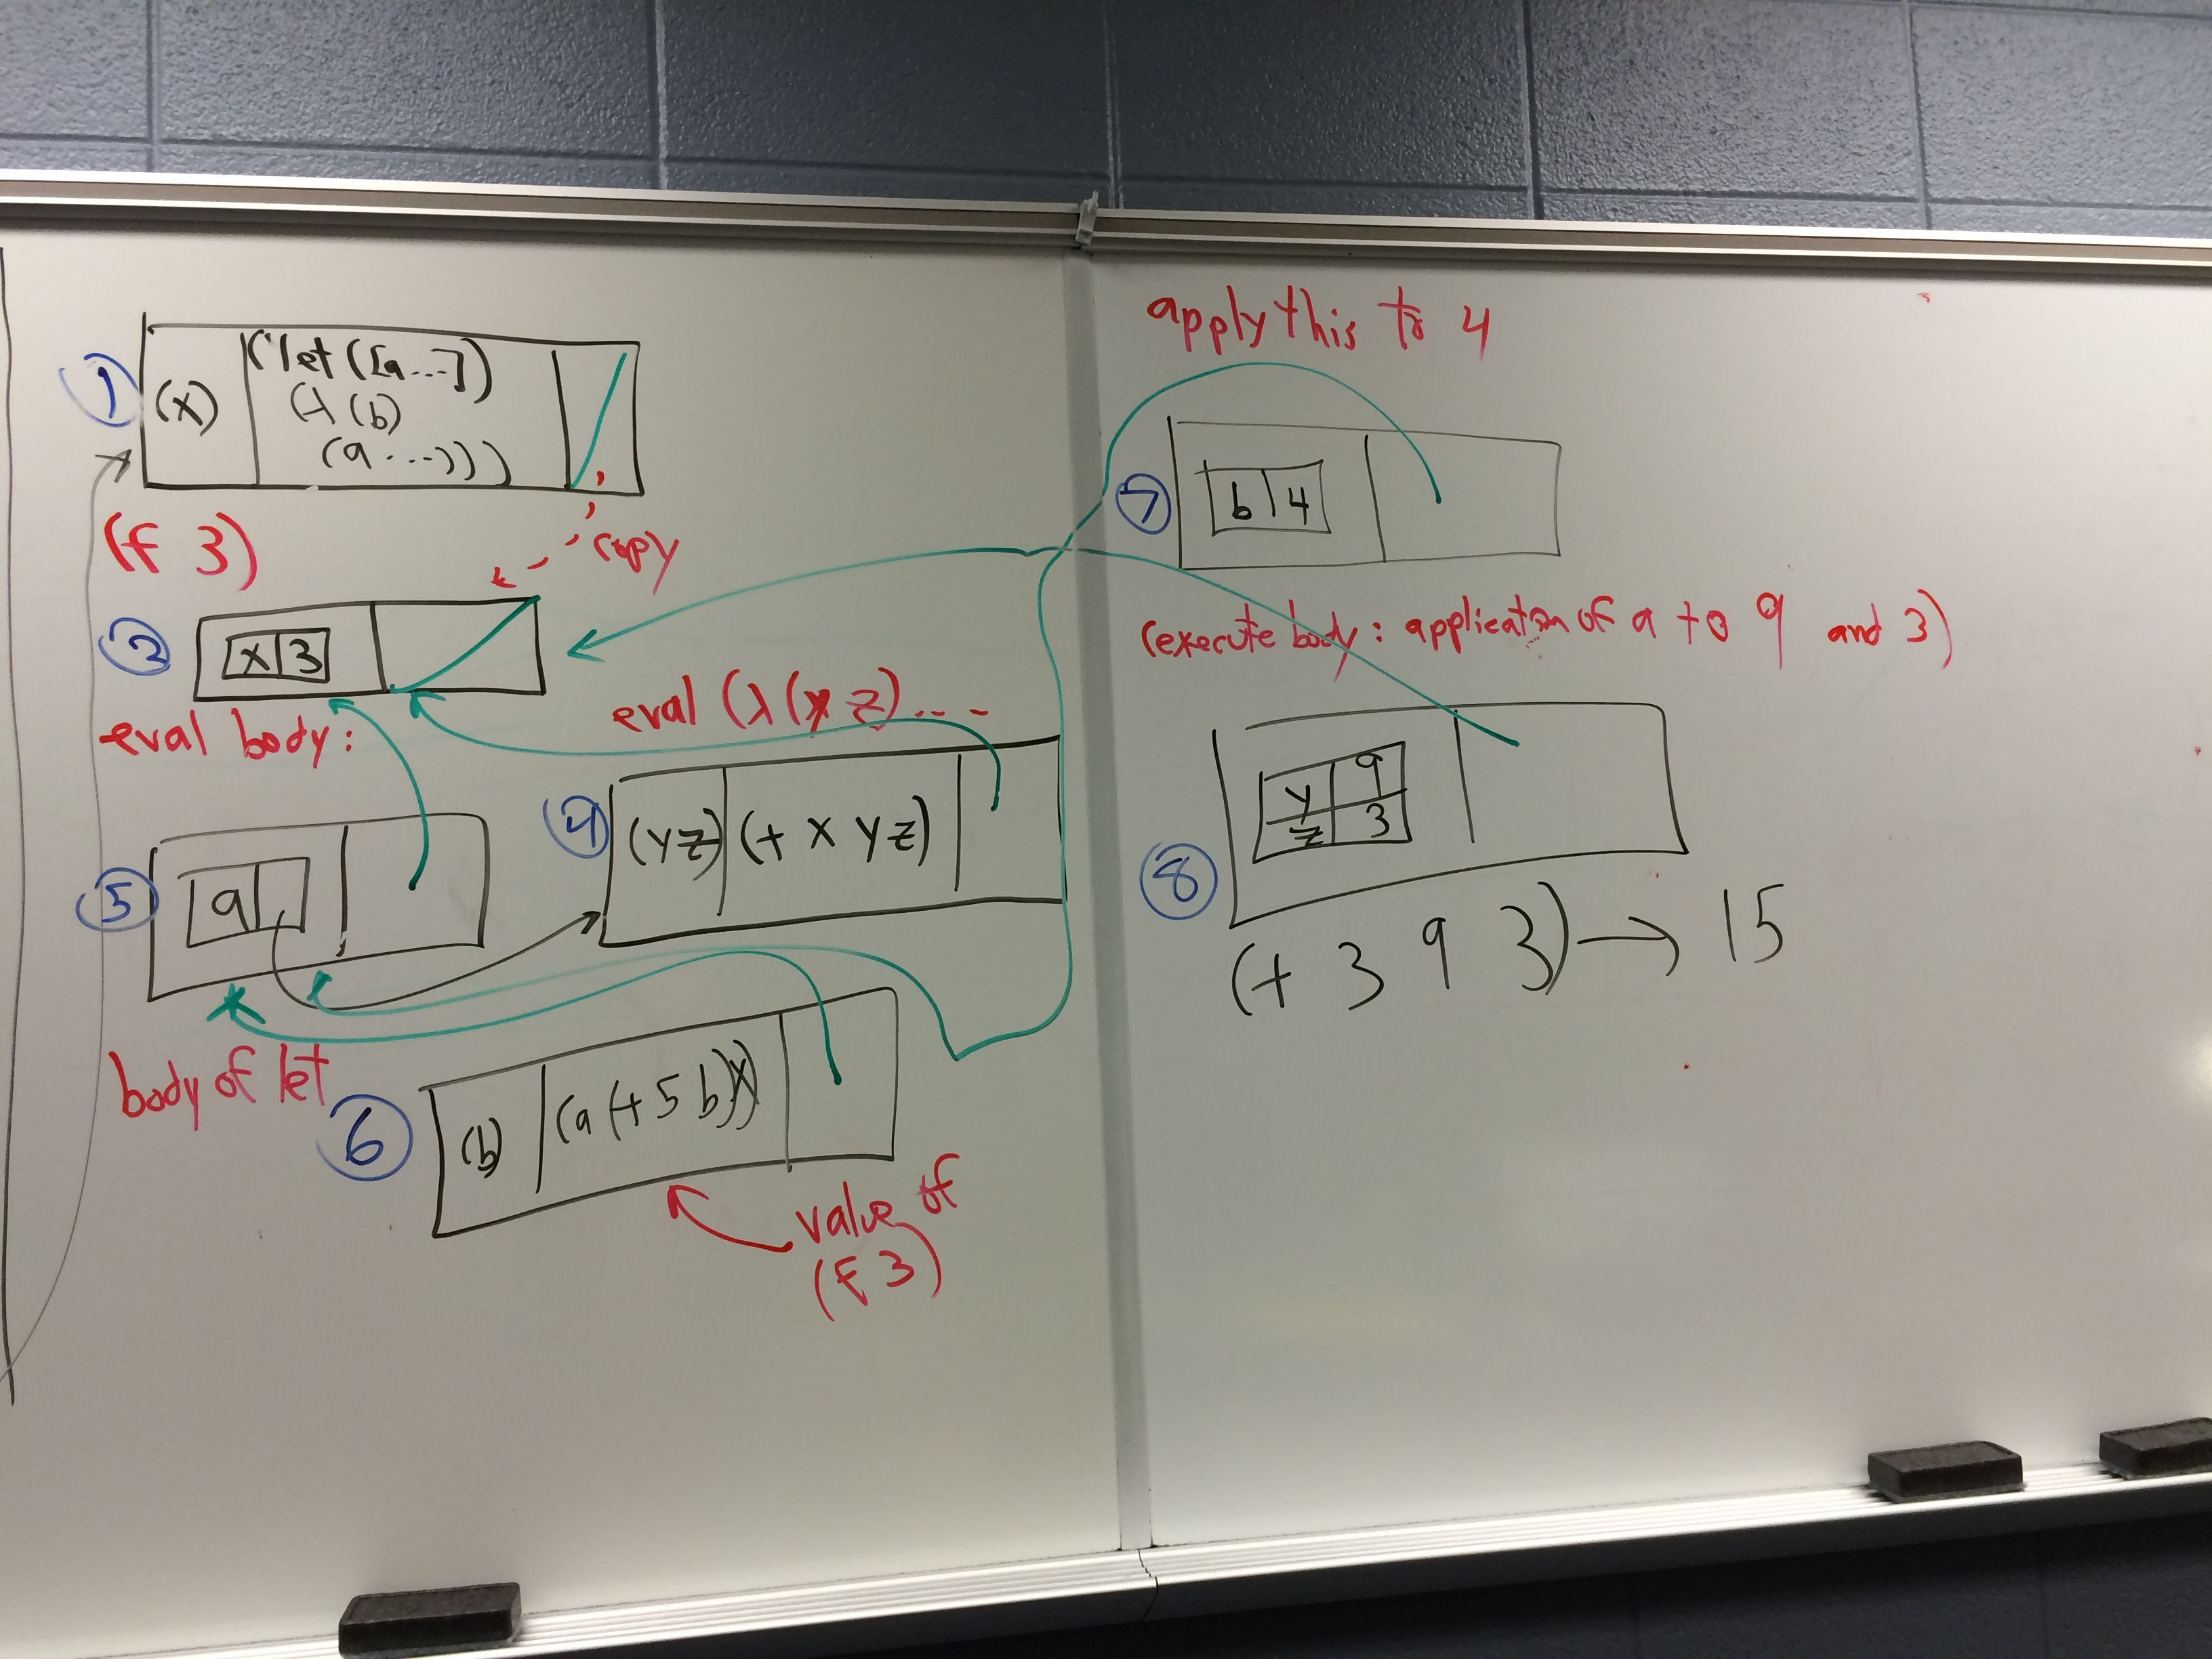 1
(x)
(let ([a ...])
(λ (b)
(a ...)))
(f 3)
copy
2
x 3
eval body:
eval (λ (y z) ...
4
(y z)
(+ x y z)
5
a
body of let
6
(b)
(a (+ 5 b) x)
value of
(f 3)
apply this to 4
7
b 4
(execute body: application of a to 9 and 3)
8
y 9
z 3
(+ 3 9 3) → 15